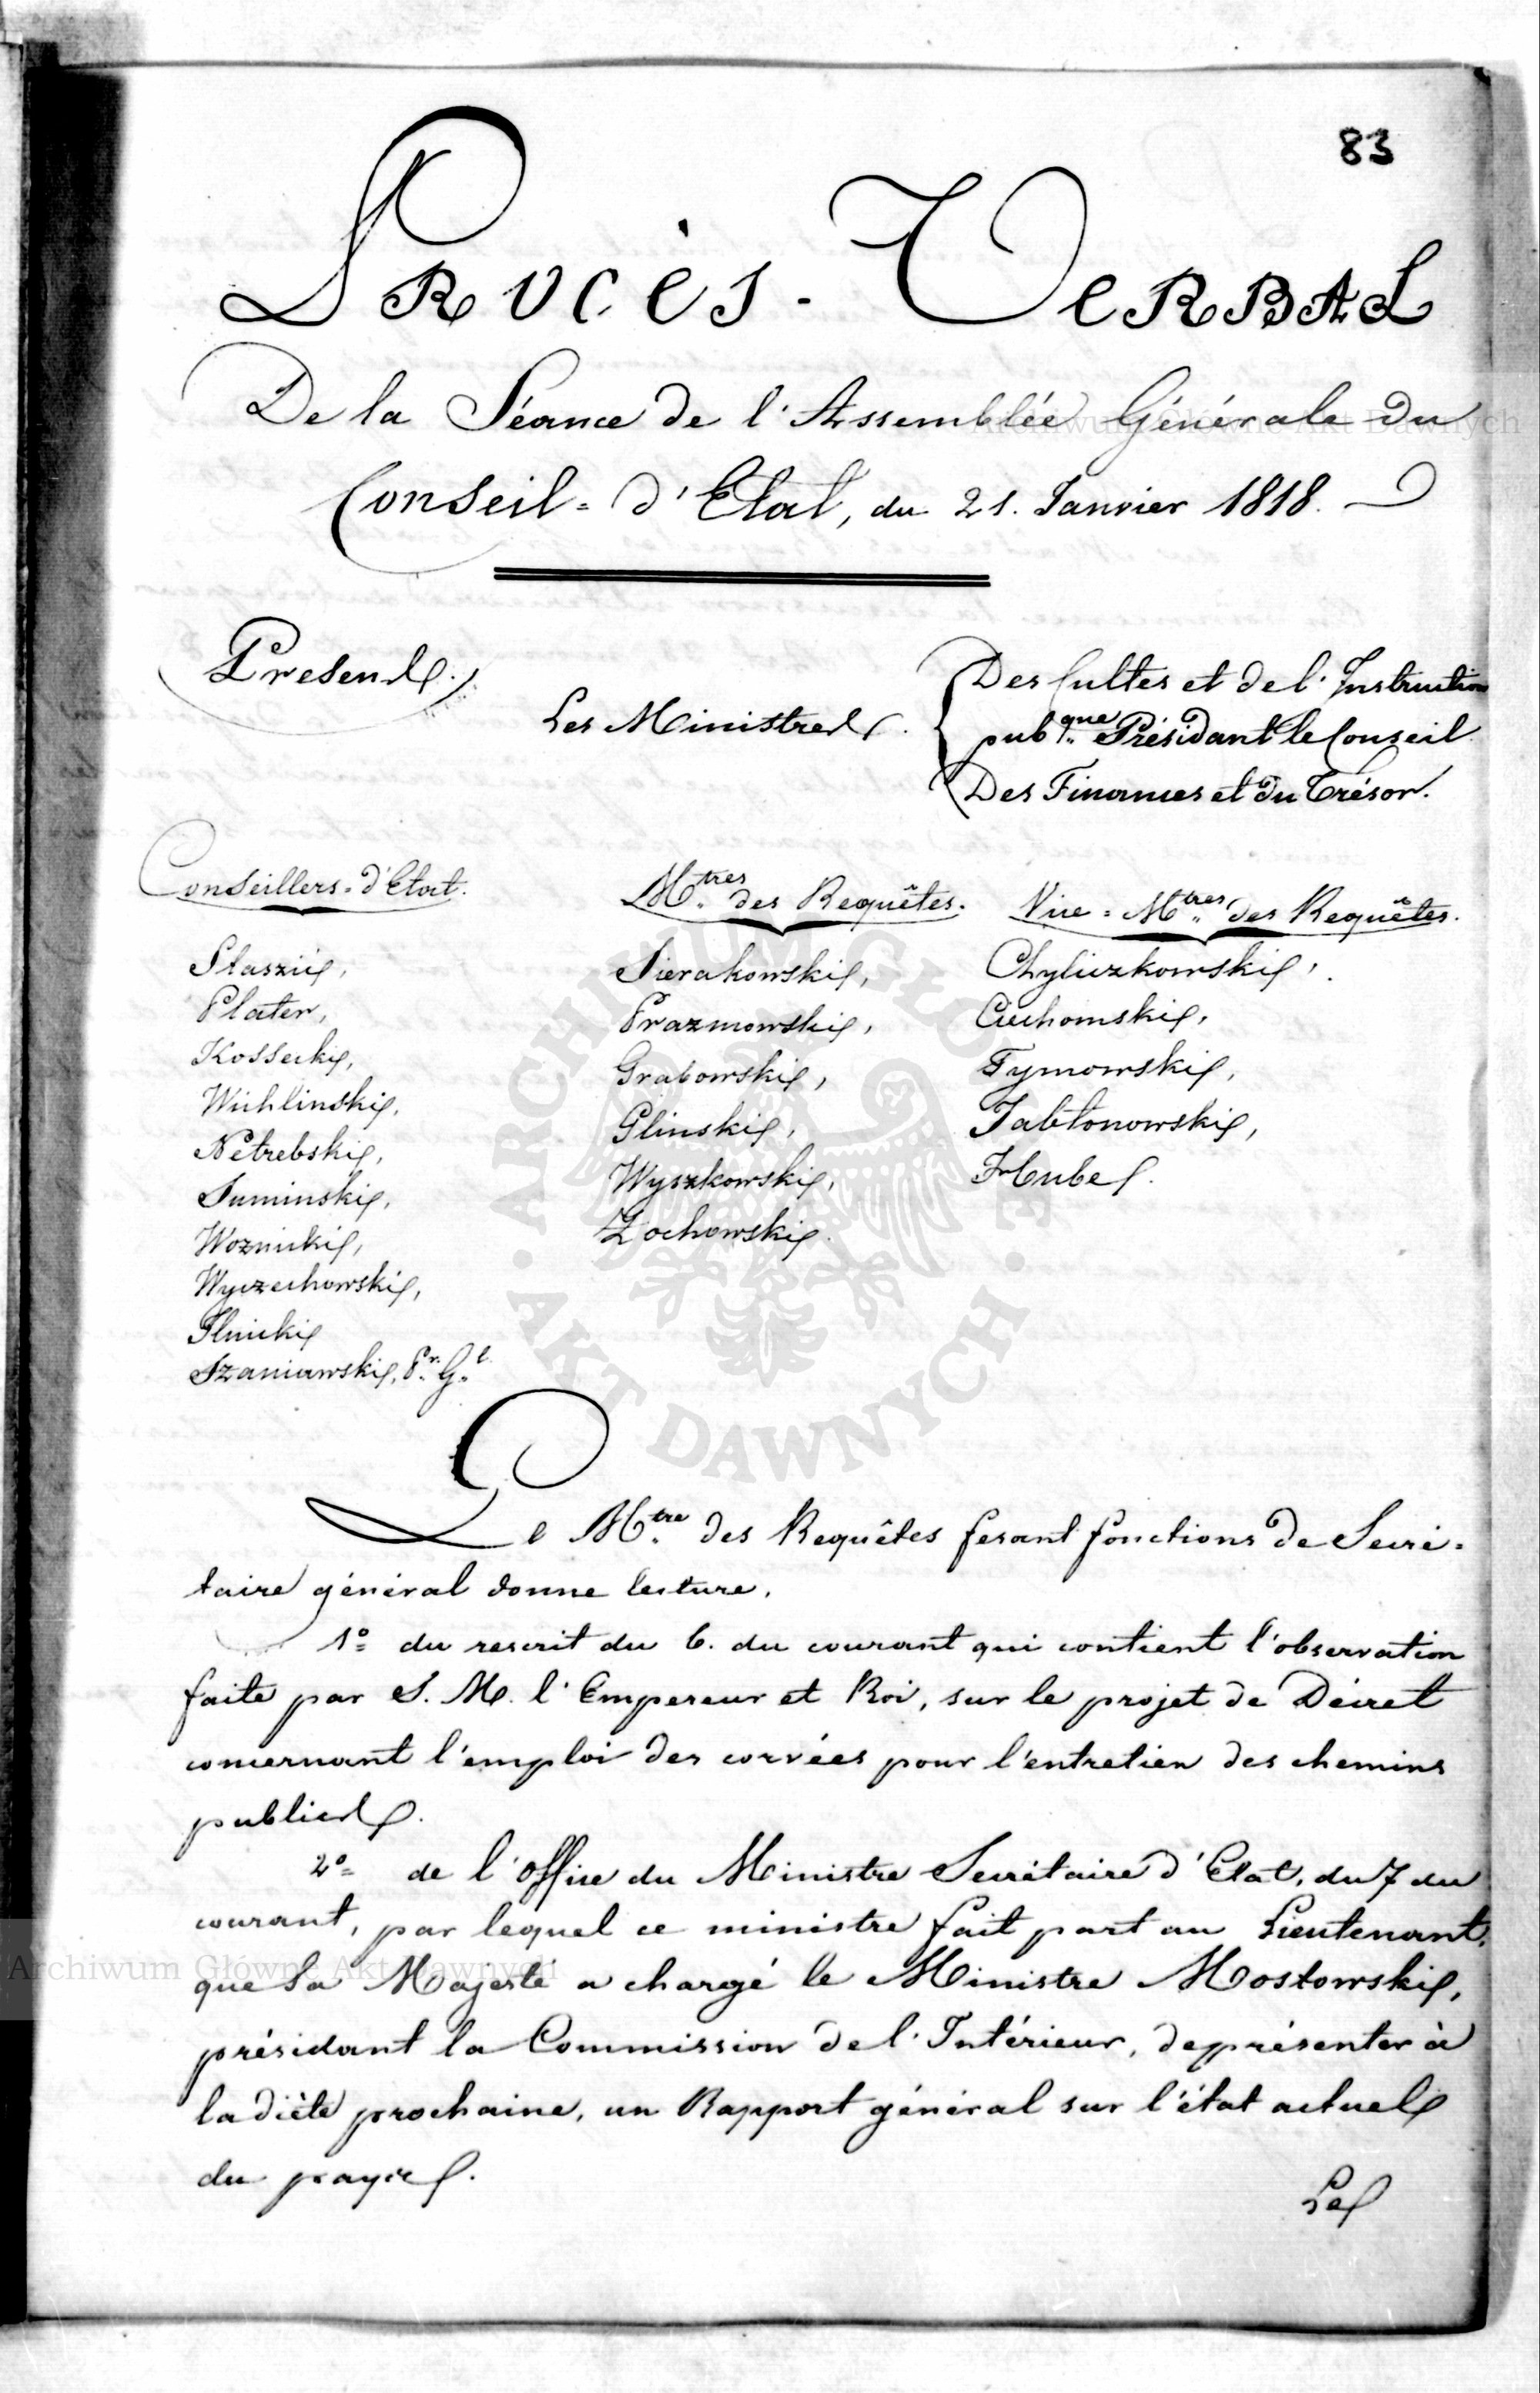 83
Procès-Verbal
De la Séance de l'Assemblée Générale du
Conseil-d'Etat, du 21. Janvier 1818.
Presens.
Les Ministres.
Des Cultes et de l'Instruction
pub.que Présidant le Conseil.
Des Finances et du Trésor.
Conseillers-d'Etat.
Staszic,
Plater,
Kossecki,
Wichlinski,
Netrebski,
Suminski,
Woznicki,
Wyczechowski,
Ilnicki
Szaniawski, Pr. Gl.
M.tres des Requêtes.
Sierakowski,
Prazmowski,
Grabowski,
Glinski,
Wyszkowski,
Zochowski.
Vice-M.tres des Requêtes.
Chyliczkowski,
Ciechomski,
Tymowski,
Jabłonowski,
Hube.
Le M.tre des Requêtes fesant fonctions de Secré-
taire général donne lecture.
1o du rescrit du 6. du courant qui contient l'observation
faite par S. M. l'Empereur et Roi, sur le projet de Décret
concernant l'emploi des corvées pour l'entretien des chemins
publics.
2o de l'office du Ministre Secrétaire d'Etat, du 7 du
courant, par lequel ce ministre fait part au Lieutenant,
que Sa Majesté a chargé le Ministre Mostowski,
présidant la Commission de l'Intérieur, de présenter à
la diète prochaine, un Rapport général sur l'état actuel
du pays.
Le
Archiwum Główne Akt Dawnych
Archiwum Główne Akt Dawnych
ARCHIWUM GŁÓWNE · AKT DAWNYCH ·